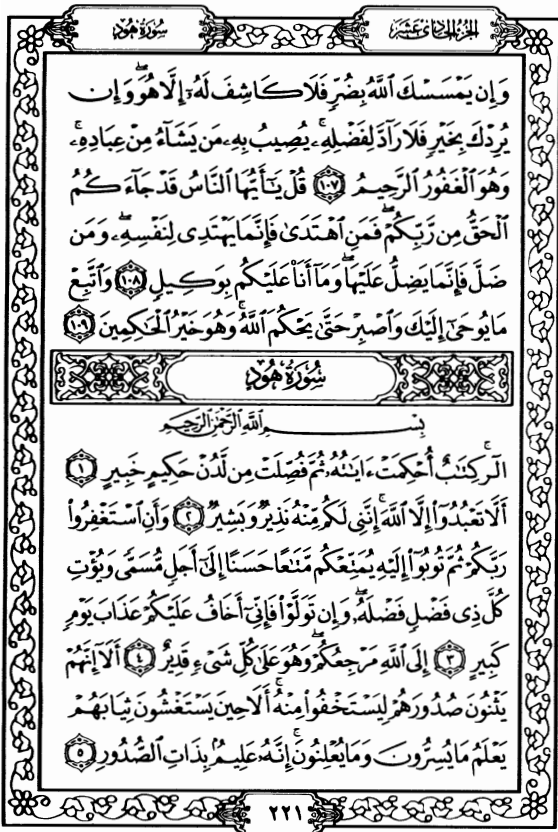 الجزء الحادي عشر
سورة هود
وَإِن يَمْسَسْكَ ٱللَّهُ بِضُرٍّ فَلَا كَاشِفَ لَهُۥٓ إِلَّا هُوَ ۖ وَإِن
يُرِدْكَ بِخَيْرٍ فَلَا رَآدَّ لِفَضْلِهِۦ ۚ يُصِيبُ بِهِۦ مَن يَشَآءُ مِنْ عِبَادِهِۦ ۚ
وَهُوَ ٱلْغَفُورُ ٱلرَّحِيمُ ١٠٧ قُلْ يَـٰٓأَيُّهَا ٱلنَّاسُ قَدْ جَآءَكُمُ
ٱلْحَقُّ مِن رَّبِّكُمْ ۖ فَمَنِ ٱهْتَدَىٰ فَإِنَّمَا يَهْتَدِى لِنَفْسِهِۦ ۖ وَمَن
ضَلَّ فَإِنَّمَا يَضِلُّ عَلَيْهَا ۖ وَمَآ أَنَا۠ عَلَيْكُم بِوَكِيلٍ ١٠٨ وَٱتَّبِعْ
مَا يُوحَىٰٓ إِلَيْكَ وَٱصْبِرْ حَتَّىٰ يَحْكُمَ ٱللَّهُ ۚ وَهُوَ خَيْرُ ٱلْحَـٰكِمِينَ ١٠٩
سُورَةُ هُودٍ
بِسْمِ ٱللَّهِ ٱلرَّحْمَـٰنِ ٱلرَّحِيمِ
الٓر ۚ كِتَـٰبٌ أُحْكِمَتْ ءَايَـٰتُهُۥ ثُمَّ فُصِّلَتْ مِن لَّدُنْ حَكِيمٍ خَبِيرٍ ١
أَلَّا تَعْبُدُوٓا۟ إِلَّا ٱللَّهَ ۚ إِنَّنِى لَكُم مِّنْهُ نَذِيرٌ وَبَشِيرٌ ٢ وَأَنِ ٱسْتَغْفِرُوا۟
رَبَّكُمْ ثُمَّ تُوبُوٓا۟ إِلَيْهِ يُمَتِّعْكُم مَّتَـٰعًا حَسَنًا إِلَىٰٓ أَجَلٍ مُّسَمًّى وَيُؤْتِ
كُلَّ ذِى فَضْلٍ فَضْلَهُۥ ۖ وَإِن تَوَلَّوْا۟ فَإِنِّىٓ أَخَافُ عَلَيْكُمْ عَذَابَ يَوْمٍ
كَبِيرٍ ٣ إِلَى ٱللَّهِ مَرْجِعُكُمْ ۖ وَهُوَ عَلَىٰ كُلِّ شَىْءٍ قَدِيرٌ ٤ أَلَآ إِنَّهُمْ
يَثْنُونَ صُدُورَهُمْ لِيَسْتَخْفُوا۟ مِنْهُ ۚ أَلَا حِينَ يَسْتَغْشُونَ ثِيَابَهُمْ
يَعْلَمُ مَا يُسِرُّونَ وَمَا يُعْلِنُونَ ۚ إِنَّهُۥ عَلِيمٌۢ بِذَاتِ ٱلصُّدُورِ ٥
٢٢١